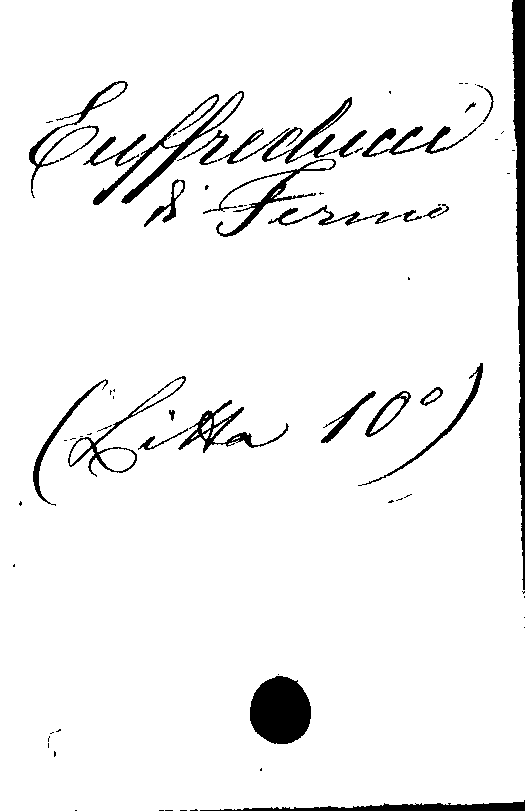 Euffreducci
di Fermo
(Litta 10°)